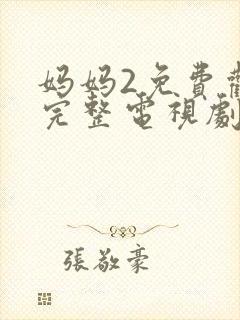 妈妈2免費
完整電視劇
張敬豪